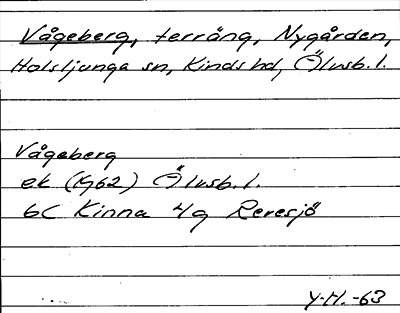 Vågeberg, terräng, Nygården,
Holsljunga sn, Kinds hd, Älvsb. l.
Vågeberg
ek (1962) Älvsb. l.
6C Kinna 4g Reresjö
Y-H. -63